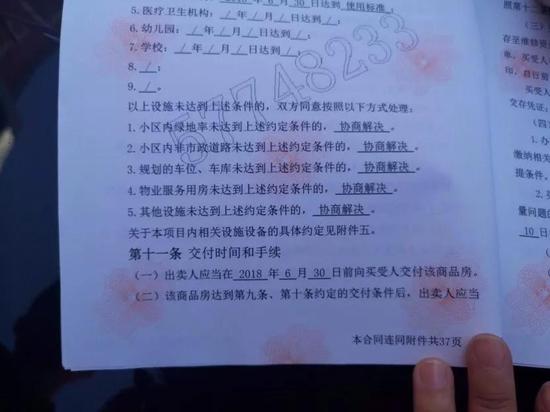 2018 年 6 月 30 日达到 使用标准；
5.医疗卫生机构：/年/月/日达到/；
6.幼儿园：/年/月/日达到/；
7.学校：/年/月/日达到/；
8./；
9./。
以上设施未达到上述条件的，双方同意按照以下方式处理：
1.小区内绿地率未达到上述约定条件的，协商解决。
2.小区内非市政道路未达到上述约定条件的，协商解决。
3.规划的车位、车库未达到上述约定条件的，协商解决。
4.物业服务用房未达到上述约定条件的，协商解决。
5.其他设施未达到上述约定条件的，协商解决。
关于本项目内相关设施设备的具体约定见附件五。
第十一条 交付时间和手续
（一）出卖人应当在 2018 年 6 月 30 日前向买受人交付该商品房。
（二）该商品房达到第九条、第十条约定的交付条件后，出卖人应当
本合同连同附件共37页
57748233
照第十二
（三）
存至维修资
单，买受人
印，自日前
买受人
交存凭证；
（四
1.办
缴纳相关
提条件。
2.
量问题的
10 日